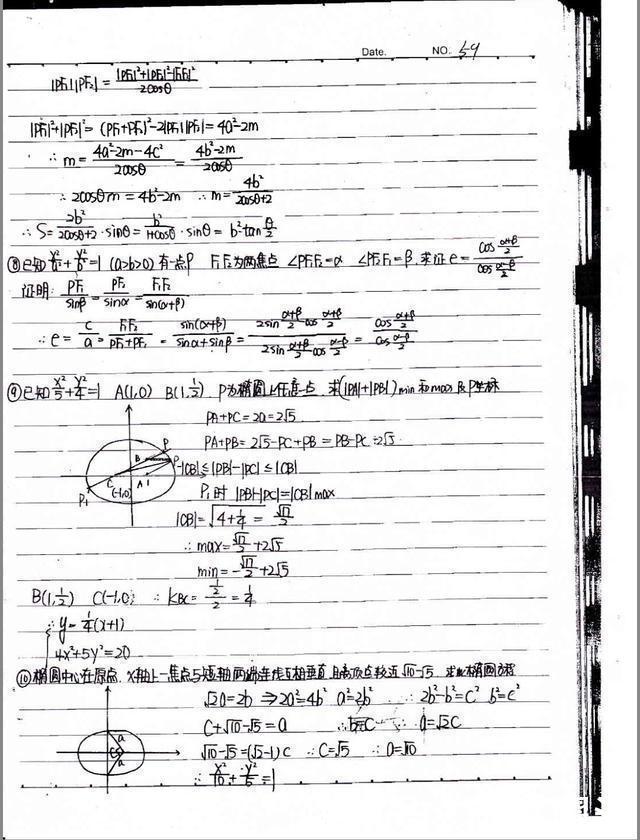 Date. NO. 59
|PF₁||PF₂| = (|PF₁|²+|PF₂|²-|F₁F₂|²)/2cosθ
|PF₁|²+|PF₂|² = (PF₁+PF₂)²-2|PF₁||PF₂| = 4a²-2m
∴ m = (4a²-2m-4c²)/2cosθ = (4b²-2m)/2cosθ
∴ 2cosθm = 4b²-2m ∴ m = 4b²/(2cosθ+2)
∴ S = 2b²/(2cosθ+2)·sinθ = b²/(1+cosθ)·sinθ = b²tan θ/2
⑧已知 x²/a²+y²/b²=1 (a>b>0) 有一点P F₁F₂为两焦点 ∠PF₁F₂=α ∠PF₂F₁=β, 求证 e = cos (α+β)/2 / cos (α-β)/2
证明: PF₁/sinβ = PF₂/sinα = F₁F₂/sin(α+β)
∴ e = c/a = F₁F₂/(PF₁+PF₂) = sin(α+β)/(sinα+sinβ) = (2sin (α+β)/2 cos (α+β)/2)/(2sin (α+β)/2 cos (α-β)/2) = cos (α+β)/2 / cos (α-β)/2
⑨已知 x²/5+y²/4=1 A(1,0) B(1,1/2) P为椭圆上任意一点, 求(|PA|+|PB|)min和max及P坐标
PA+PC=2a=2√5
PA+PB=2√5-PC+PB=PB-PC+2√5
-|CB|≤|PB|-|PC|≤|CB|
P₁时 |PB|-|PC|=|CB|max
|CB|=√(4+1/4)=√17/2
∴ max=√17/2+2√5
min=-√17/2+2√5
P
B P
C A 1
(-1,0)
P₁
B(1,1/2) C(-1,0) ∴ KBC=(1/2)/2=1/4
∴ { y=1/4(x+1)
4x²+5y²=20
⑩椭圆中心在原点, x轴上一焦点与短轴两端连线互相垂直, 且与顶点较近√10-√5, 求椭圆方程
√2a=2b ⇒2a²=4b² a²=2b² ∴ 2b²-b²=c² b²=c²
C+√10-√5=a ∴ b=C ∴ a=√2C
√10-√5=(√2-1)c ∴ C=√5 ∴ a=√10
∴ x²/10+y²/5=1
a
C
a